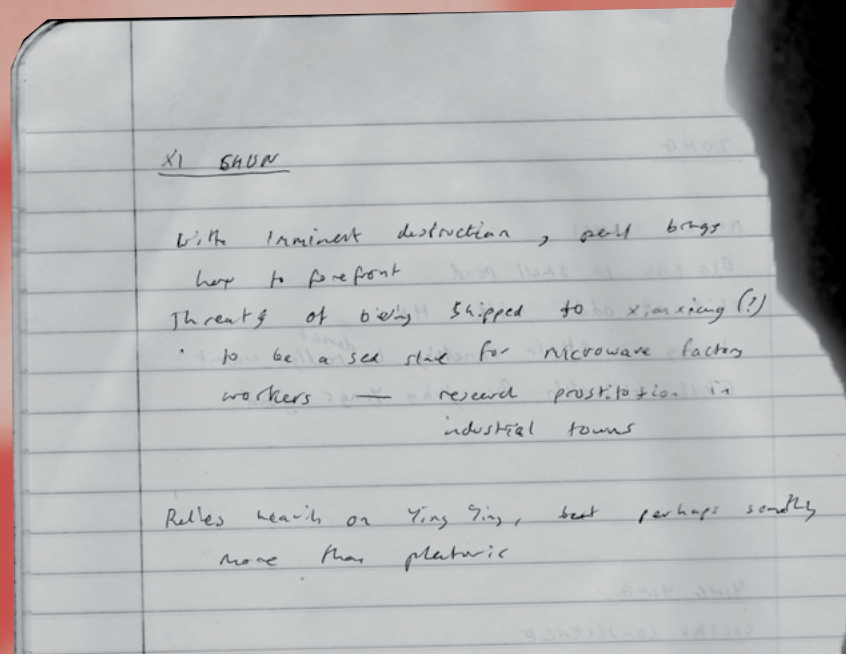 XI SHUN
With imminent destruction, peril brings
her to forefront
Threats of being shipped to xianxiang (?)
to be a sex slave for microwave factory
workers — research prostitution in
industrial towns
Relies heavily on Ying Ying, best perhaps
more than platonic